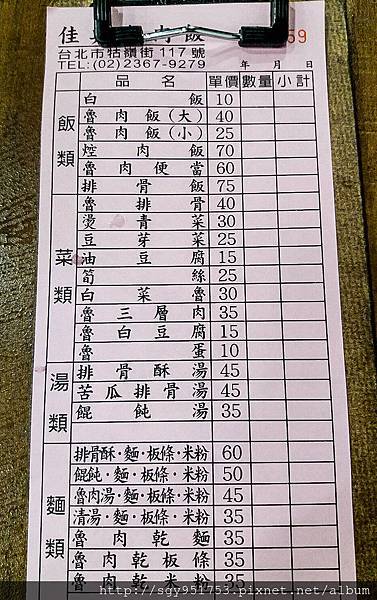 佳 飯 59
台北市牯嶺街117號
TEL:(02)2367-9279 年 月 日
品名 單價 數量 小計
飯類
白飯 10
魯肉飯(大) 40
魯肉飯(小) 25
焢肉飯 70
魯肉便當 60
排骨飯 75
菜類
魯排骨 40
燙青菜 30
豆芽菜 25
油豆腐 15
筍絲 25
白菜魯 30
魯三層肉 35
魯白豆腐 15
魯蛋 10
湯類
排骨酥湯 45
苦瓜排骨湯 45
餛飩湯 35
麵類
排骨酥·麵·板條·米粉 60
餛飩·麵·板條·米粉 50
魯肉湯·麵·板條·米粉 45
清湯·麵·板條·米粉 35
魯肉乾麵 35
魯肉乾板條 35
魯肉乾米粉 35
http://sgy951753.pixnet.net/album